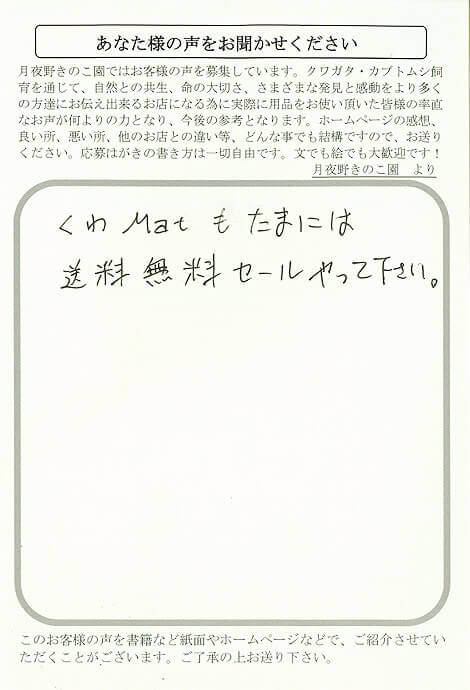 あなた様の声をお聞かせください
月夜野きのこ園ではお客様の声を募集しています。クワガタ・カブトムシ飼
育を通じて、自然との共生、命の大切さ、さまざまな発見と感動をより多く
の方達にお伝え出来るお店になる為に実際に用品をお使い頂いた皆様の率直
なお声が何よりの力となり、今後の参考となります。ホームページの感想、
良い所、悪い所、他のお店との違い等、どんな事でも結構ですので、お送り
ください。応募はがきの書き方は一切自由です。文でも絵でも大歓迎です！
月夜野きのこ園　より
くわMatもたまには
送料無料セールやって下さい。
このお客様の声を書籍など紙面やホームページなどで、ご紹介させてい
ただくことがございます。ご了承の上お送り下さい。